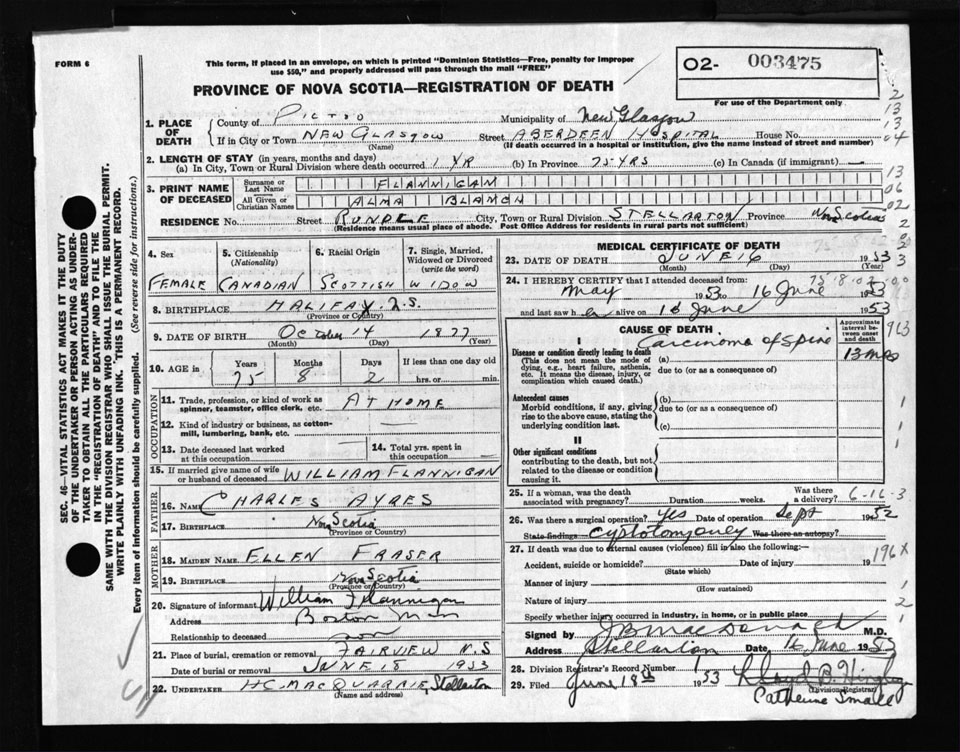 FORM 6
This form, if placed in an envelope, on which is printed "Dominion Statistics—Free, penalty for improper
use $50," and properly addressed will pass through the mail "FREE"
02- 003475
For use of the Department only
PROVINCE OF NOVA SCOTIA—REGISTRATION OF DEATH
1. PLACE OF DEATH
County of PICTOU Municipality of New Glasgow
If in City or Town NEW GLASGOW Street ABERDEEN HOSPITAL House No.
(Name) (If death occurred in a hospital or institution, give the name instead of street and number)
2. LENGTH OF STAY (in years, months and days)
(a) In City, Town or Rural Division where death occurred 1 YR (b) In Province 75 YRS (c) In Canada (if immigrant) —
3. PRINT NAME OF DECEASED
Surname or Last Name FLANNIGAN
All Given or Christian Names ALMA BLANCH
RESIDENCE No. Street RUNDLE City, Town or Rural Division STELLARTON Province Nova Scotia
(Residence means usual place of abode. Post Office Address for residents in rural parts not sufficient)
SEC. 46—VITAL STATISTICS ACT MAKES IT THE DUTY
OF THE UNDERTAKER OR PERSON ACTING AS UNDER-
TAKER TO OBTAIN ALL THE PARTICULARS REQUIRED
IN THE "REGISTRATION OF DEATH" AND TO FILE THE
SAME WITH THE DIVISION REGISTRAR WHO SHALL ISSUE THE BURIAL PERMIT.
WRITE PLAINLY WITH UNFADING INK. THIS IS A PERMANENT RECORD.
Every item of information should be carefully supplied. (See reverse side for instructions.)
4. Sex 5. Citizenship (Nationality) 6. Racial Origin 7. Single, Married, Widowed or Divorced (write the word)
FEMALE CANADIAN SCOTTISH WIDOW
8. BIRTHPLACE HALIFAX N.S.
(Province or Country)
9. DATE OF BIRTH October 14 1877
(Month) (Day) (Year)
10. AGE in Years Months Days If less than one day
75 8 2 hrs. or min.
OCCUPATION
11. Trade, profession, or kind of work as
spinner, teamster, office clerk, etc. AT HOME
12. Kind of industry or business, as cotton-
mill, lumbering, bank, etc. —
13. Date deceased last worked
at this occupation —
14. Total yrs. spent in
this occupation —
15. If married give name of wife
or husband of deceased WILLIAM FLANNIGAN
FATHER
16. NAME CHARLES AYRES
17. BIRTHPLACE Nova Scotia
(Province or Country)
MOTHER
18. MAIDEN NAME ELLEN FRASER
19. BIRTHPLACE Nova Scotia
(Province or Country)
20. Signature of informant William Flannigan
Address Boston
Relationship to deceased son
21. Place of burial, cremation or removal FAIRVIEW N.S
Date of burial or removal JUNE 18 1953
22. UNDERTAKER H.C. MACQUARRIE, Stellarton
(Name and address)
MEDICAL CERTIFICATE OF DEATH
23. DATE OF DEATH JUNE 16 1953
(Month) (Day) (Year)
24. I HEREBY CERTIFY that I attended deceased from
May 1953 to 16 June 1953
and last saw h er alive on 16 June 1953
CAUSE OF DEATH
Approximate interval between onset and death
I
Disease or condition directly leading to death (a) Carcinoma of Spine 13 mos
(This does not mean the mode of
dying, e.g., heart failure, asthenia,
etc. It means the disease, injury, or
complication which caused death.)
due to (or as a consequence of)
Antecedent causes
Morbid conditions, if any, giving
rise to the above cause, stating the
underlying condition last.
(b)
due to (or as a consequence of)
(c)
II
Other significant conditions
contributing to the death, but not
related to the disease or condition
causing it.
25. If a woman, was the death
associated with pregnancy? Duration weeks. Was there a delivery? 6-16-3
26. Was there a surgical operation? Yes Date of operation Sept 1952
State findings Was there an autopsy?
27. If death was due to external causes (violence) fill in also the following:—
Accident, suicide or homicide? Date of injury 19
(State which)
196X
Manner of injury
(How sustained)
Nature of injury
Specify whether injury occurred in industry, in home, or in public place
Signed by J B MacDonald M.D.
Address Stellarton Date 16 June 1953
28. Division Registrar's Record Number
29. Filed June 18th 1953
(Division Registrar)
Catherine Small